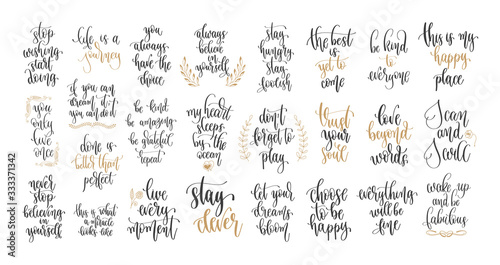 stop
wishing
start
doing
life is a
journey
you
always
have the
choice
always
believe
in
yourself
stay
hungry
stay
foolish
the best
is yet to
come
be kind
to
everyone
this is my
happy
place
you
only
live
once
if you can
dream it
you can do it
done is
better than
perfect
be kind
be amazing
be grateful
repeat
my heart
sleeps
by the
ocean
don't
forget to
play
trust
your
soul
love
beyond
words
I can
and
I will
never
stop
believing
in
yourself
this is what
a miracle
looks like
live
every
moment
stay
clever
let your
dreams
bloom
choose
to be
happy
everything
will be
fine
wake up
and be
fabulous
Adobe Stock | #333371342